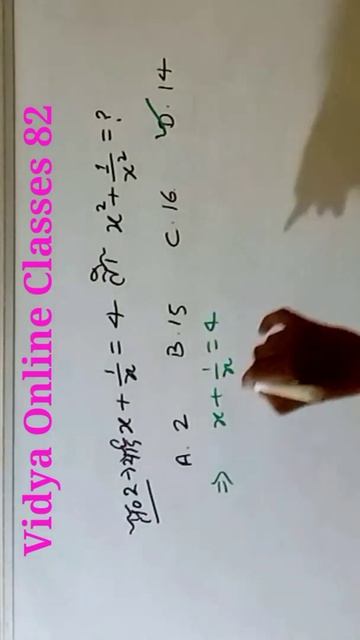 Vidya Online Classes 82
प्र० 2 → यदि x + 1/x = 4 हो तो x² + 1/x² = ?
A. 2 B. 15 C. 16 D. 14
⇒ x + 1/x = 4